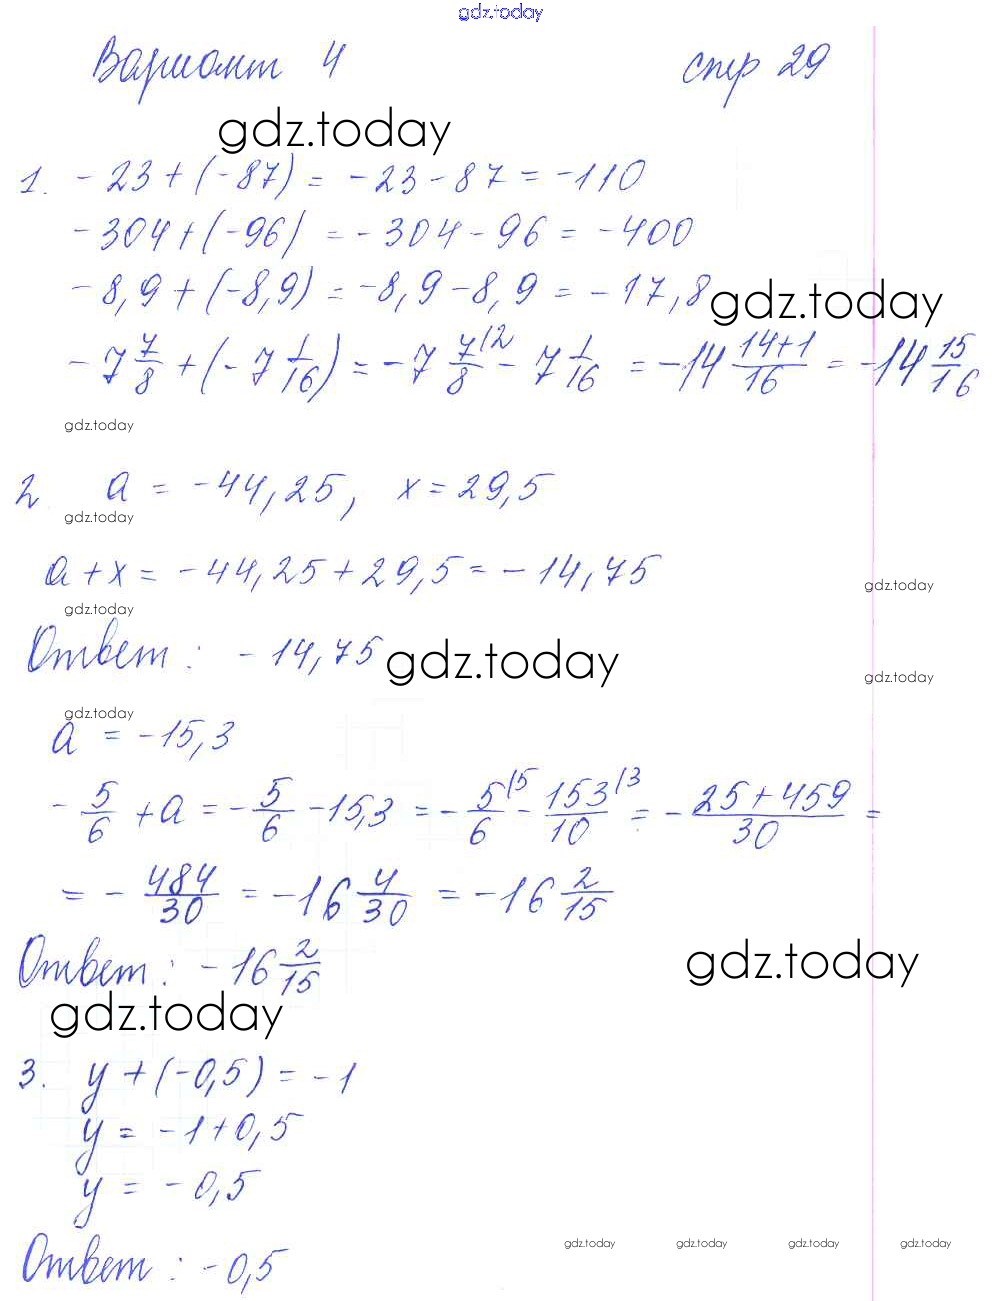 gdz.today
Вариант 4 стр 29
gdz.today
1. -23+(-87) = -23-87 = -110
-304+(-96) = -304-96 = -400
-8,9+(-8,9) = -8,9-8,9 = -17,8
gdz.today
-7 7/8 + (-7 1/16) = -7 7/8 |2 - 7 1/16 = -14 14+1/16 = -14 15/16
gdz.today
2 a = -44,25, x=29,5
gdz.today
a+x = -44,25+29,5 = -14,75
gdz.today
gdz.today
Ответ: -14,75
gdz.today
gdz.today
gdz.today
a = -15,3
-5/6 + a = -5/6 - 15,3 = -5/6 |5 - 153/10 |3 = - 25+459/30 =
= - 484/30 = -16 4/30 = -16 2/15
Ответ: -16 2/15
gdz.today
gdz.today
3. y+(-0,5) = -1
y = -1+0,5
y = -0,5
Ответ: -0,5
gdz.today gdz.today gdz.today gdz.today